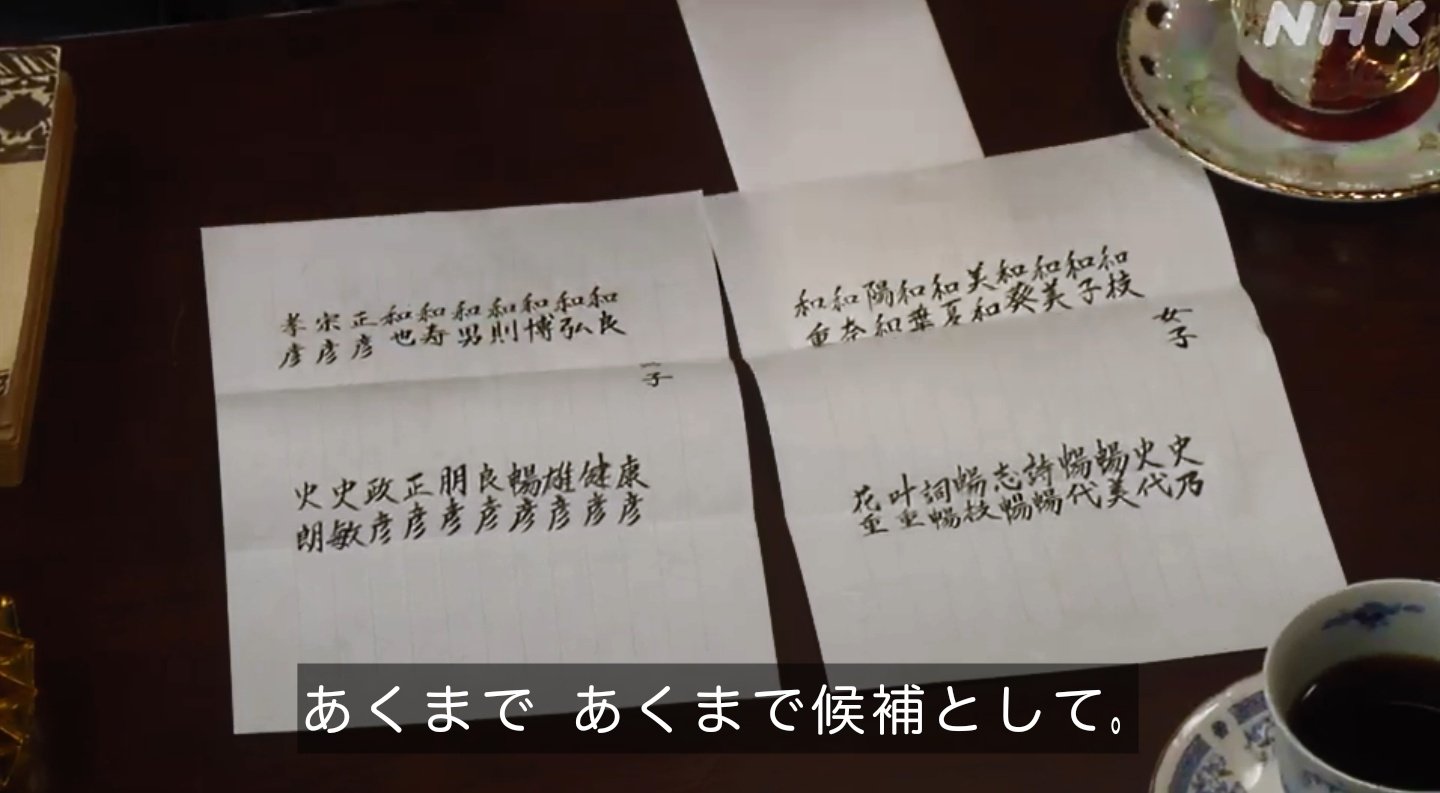 NHK
女子
和枝
和子
和美
和葵
美和
和夏
和葉
陽和
和奈
和重
史乃
史代
暢美
暢代
詩暢
志暢
暢枝
詞暢
叶重
花重
子
和良
和弘
和博
和則
和男
和寿
和也
正彦
宗彦
孝彦
康彦
健彦
雄彦
暢彦
良彦
朋彦
正彦
政彦
史敏
史朗
あくまで あくまで候補として。